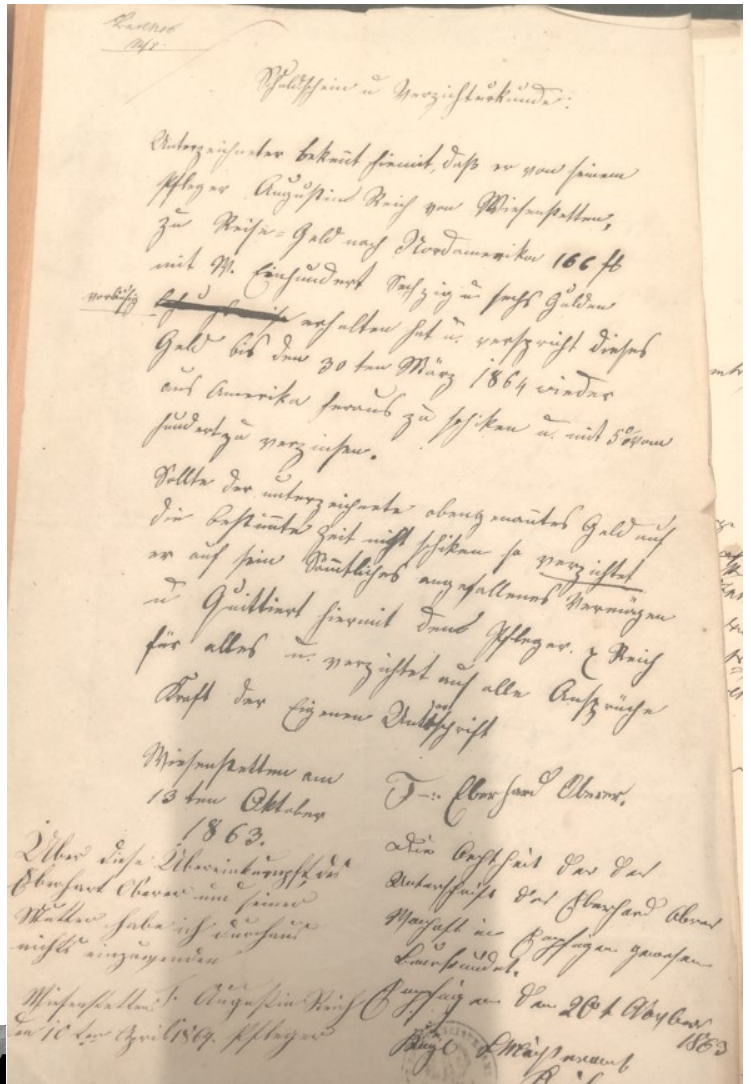 Schuldschein u Verzichturkunde:
Unterzeichneter bekent hiemit, daß er von seinem
Pfleger Augustin Reich von Wiesenstetten,
zu Reise=Geld nach Nordamerika 166 fl
mit W. Einhundert Sechzig u sechs Gulden
vorläufig
erhalten hat u. verspricht dieses
Geld bis den 30 ten März 1864 wieder
aus Amerika heraus zu schiken u. mit 5% vom
hundert zu verzinsen.
Sollte der unterzeichnete obengenantes Geld auf
die bestimte Zeit nicht schiken so verzichtet
er auf sein Sämtliches angefallenes Vermögen
u Quittiert hiermit dem Pfleger. Reich
für alles u. verzichtet auf alle Ansprüche
Kraft der Eigenen Unterschrift
Wiesenstetten am
13 ten Oktober
1863.
T-: Eberhard Oberer.
Über diese Übereinkumpft des
Eberhart Oberer und seiner
Mutter habe ich durchaus
nichts einzuwenden
Wiesenstetten Augustin Reich
den 10 ten April 1864. Pfleger
Die Aechtheit der der
Unterschrift des Eberhard Oberer
in Empfingen gewesen
beurkundet.
Empfingen den 20 t
1863